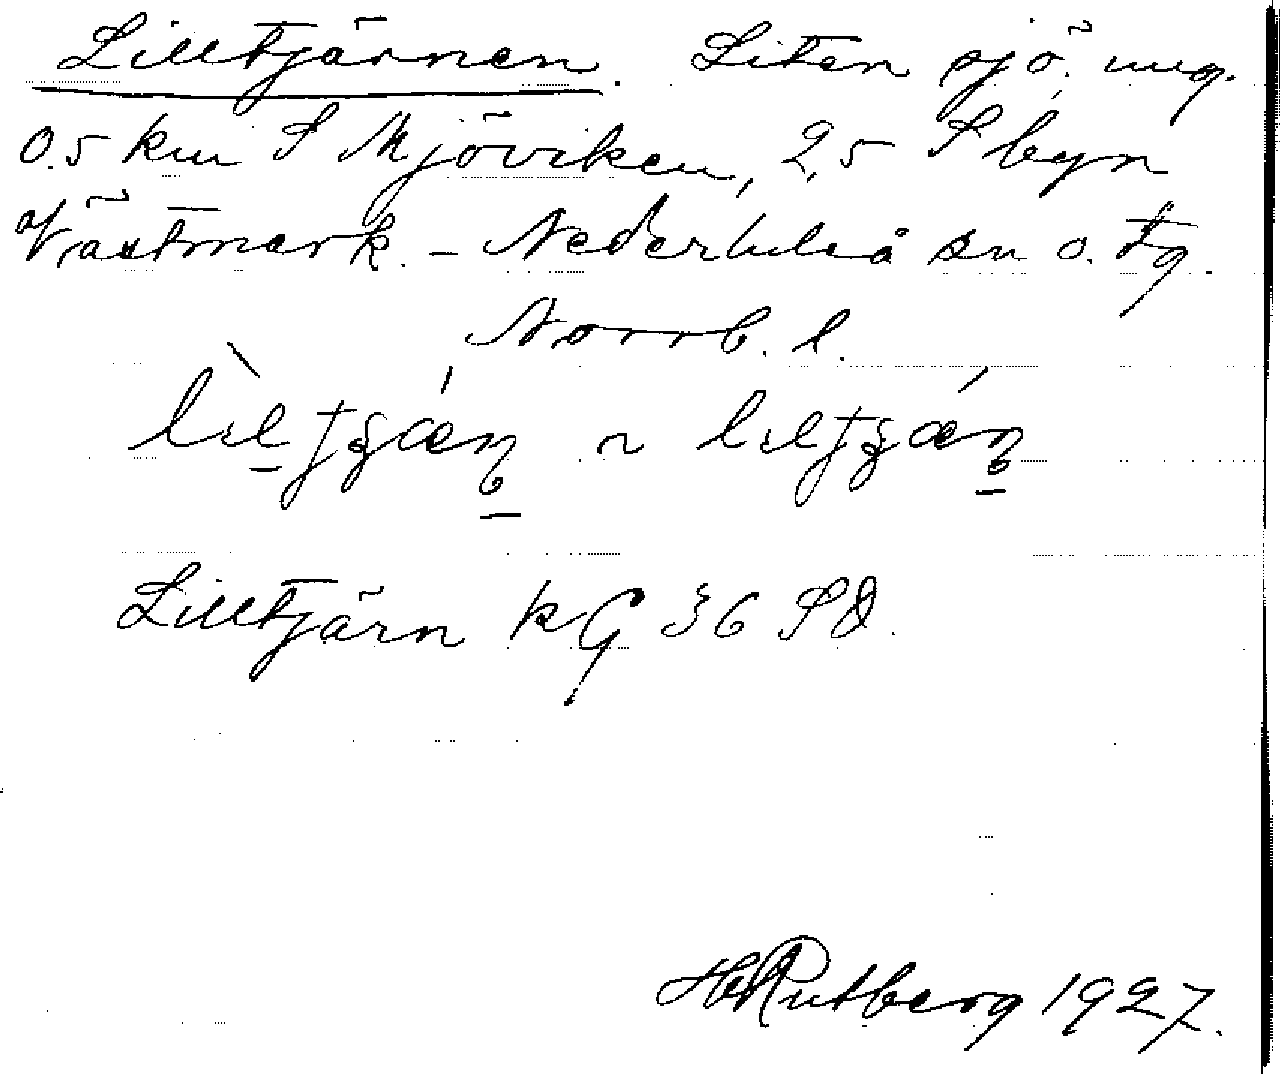 Lilltjärnen. Liten sjö, ung.
0.5 km S Mjöviken, 2,5 S byn
Västmark. - Nederluleå sn o. tg.
Norrb. l.
Lilltjärn kG 36 SO.
H Rutberg 1927.